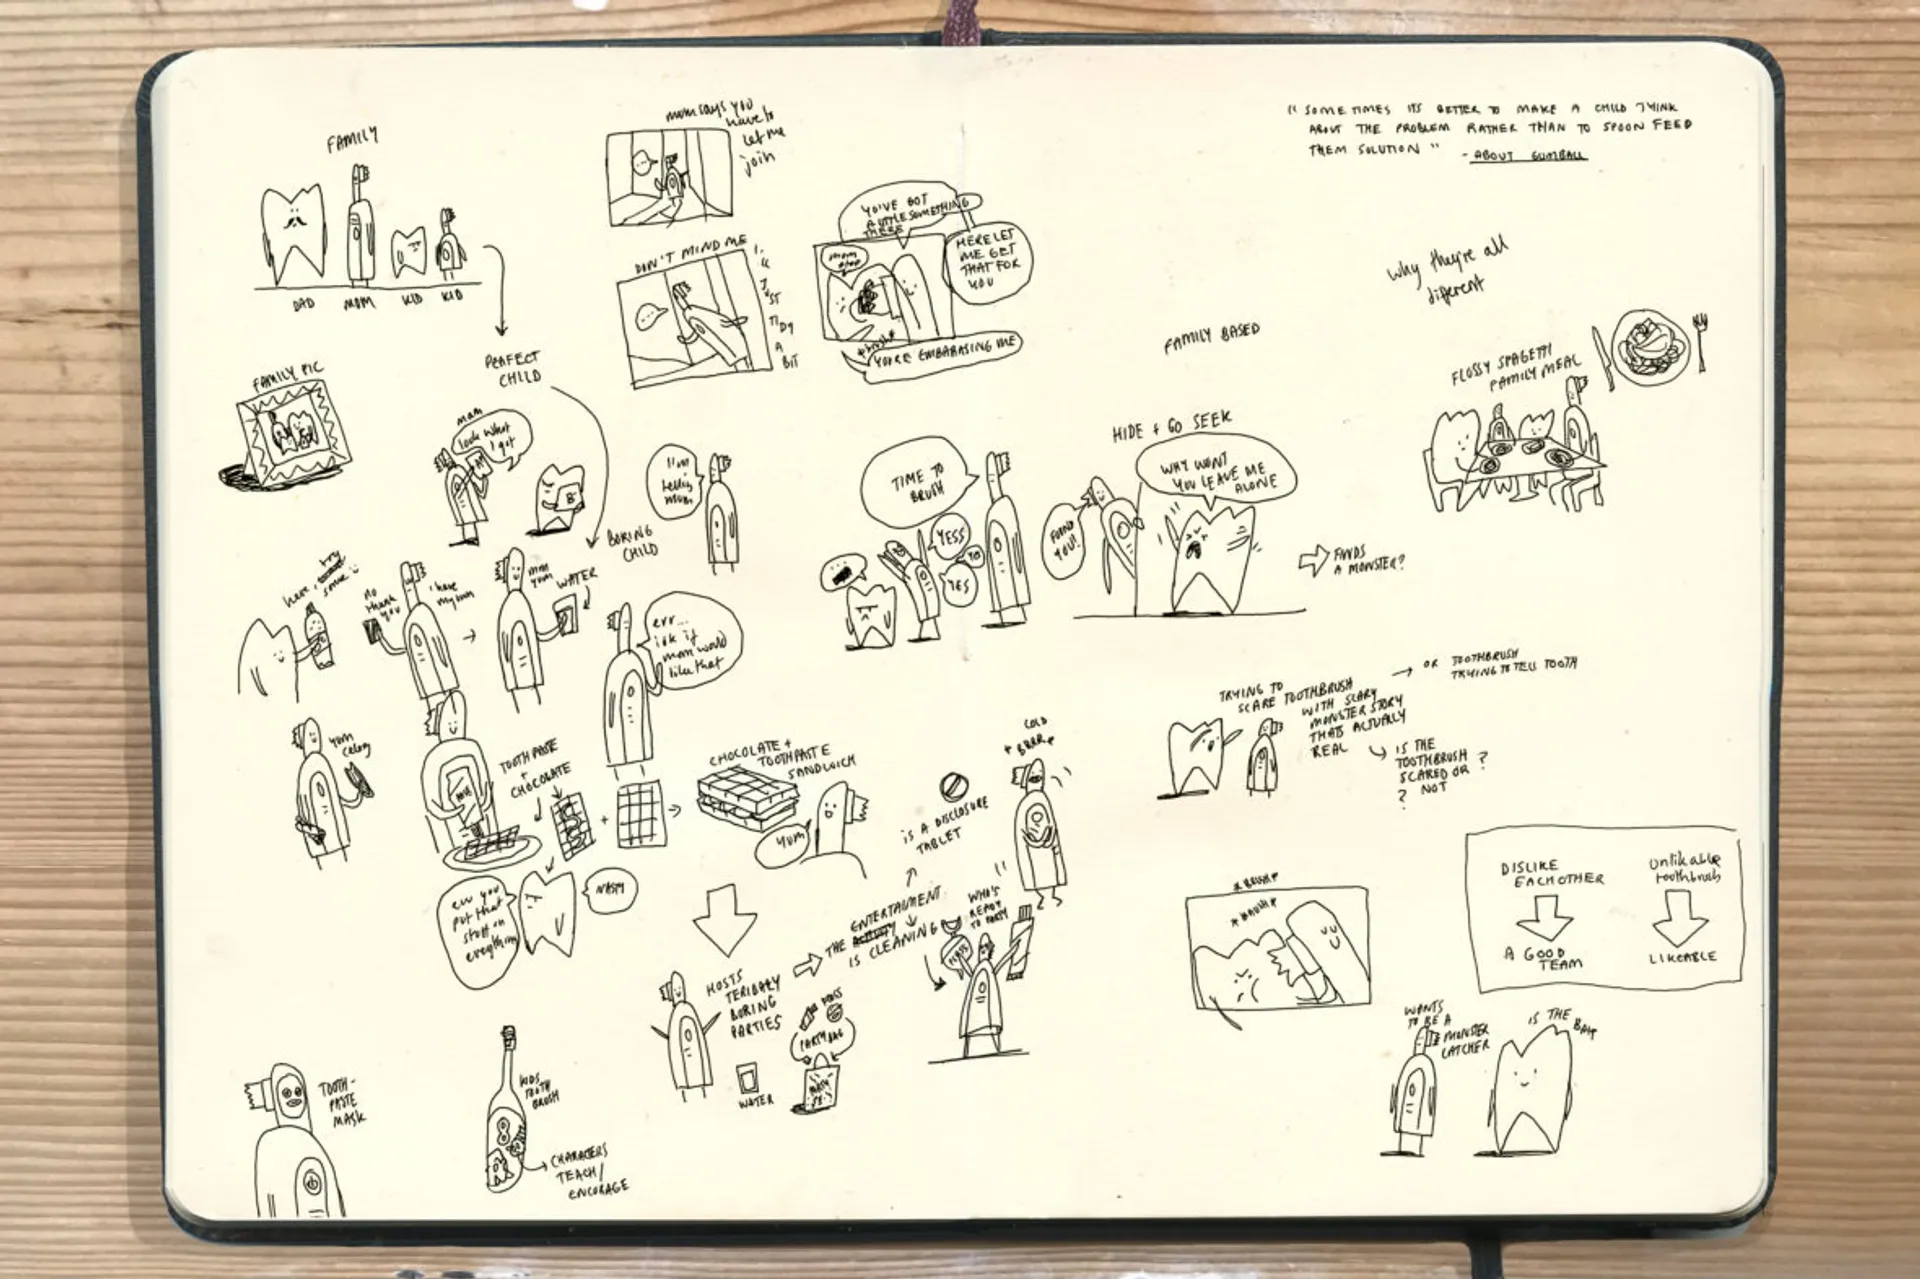 FAMILY
DAD
MOM
KID
KID
PERFECT
CHILD
FAMILY PIC
mom
look what
I got
A+
B
BORING
CHILD
I'm
telling
mum
mom says you
have to
let me
join
DON'T MIND ME
I
JUST
TIDY
A
BIT
YOU'VE GOT
A LITTLE SOMETHING
THERE
HERE LET
ME GET
THAT FOR
YOU
mom
stop
*brush*
YOU'RE EMBARASING ME
here, try
some
no
thank
you
i have
my own
mm
yum
WATER
err...
idk if
mom would
like that
yum
celery
TOOTHPASTE
+
CHOCOLATE
+
CHOCOLATE +
TOOTHPASTE
SANDWICH
YUM
ew you
put that
stuff on
everything
NASTY
HOSTS
TERIBALY
BORING
PARTIES
WATER
PARTY BAG
THE ENTERTAIMENT
IS CLEANING
IS A DISCLOSURE
TABLET
COLD
* BRRR *
WHO'S
READY
TO PARTY
TOOTH-
PASTE
MASK
KIDS
TOOTH
BRUSH
CHARACTERS
TEACH/
ENCORAGE
"SOMETIMES ITS BETTER TO MAKE A CHILD THINK
ABOUT THE PROBLEM RATHER THAN TO SPOON FEED
THEM SOLUTION"
- ABOUT GUMBALL
why they're all
different
FAMILY BASED
FLOSSY SPAGETTI
FAMILY MEAL
TIME TO
BRUSH
YESS
YES
HIDE + GO SEEK
FOUND
YOU!
WHY WONT
YOU LEAVE ME
ALONE
FINDS
A MONSTER?
TRYING TO
SCARE TOOTHBRUSH
WITH SCARY
MONSTER STORY
THATS ACTUALLY
REAL
OR TOOTHBRUSH
TRYING TO TELL TOOTH
IS THE
TOOTHBRUSH ?
SCARED OR
? NOT
DISLIKE
EACHOTHER
A GOOD
TEAM
Unlikable
toothbrush
LIKEABLE
*BRUSH*
*BRUSH*
WANTS
TO BE A
MONSTER
CATCHER
IS THE
BAIT